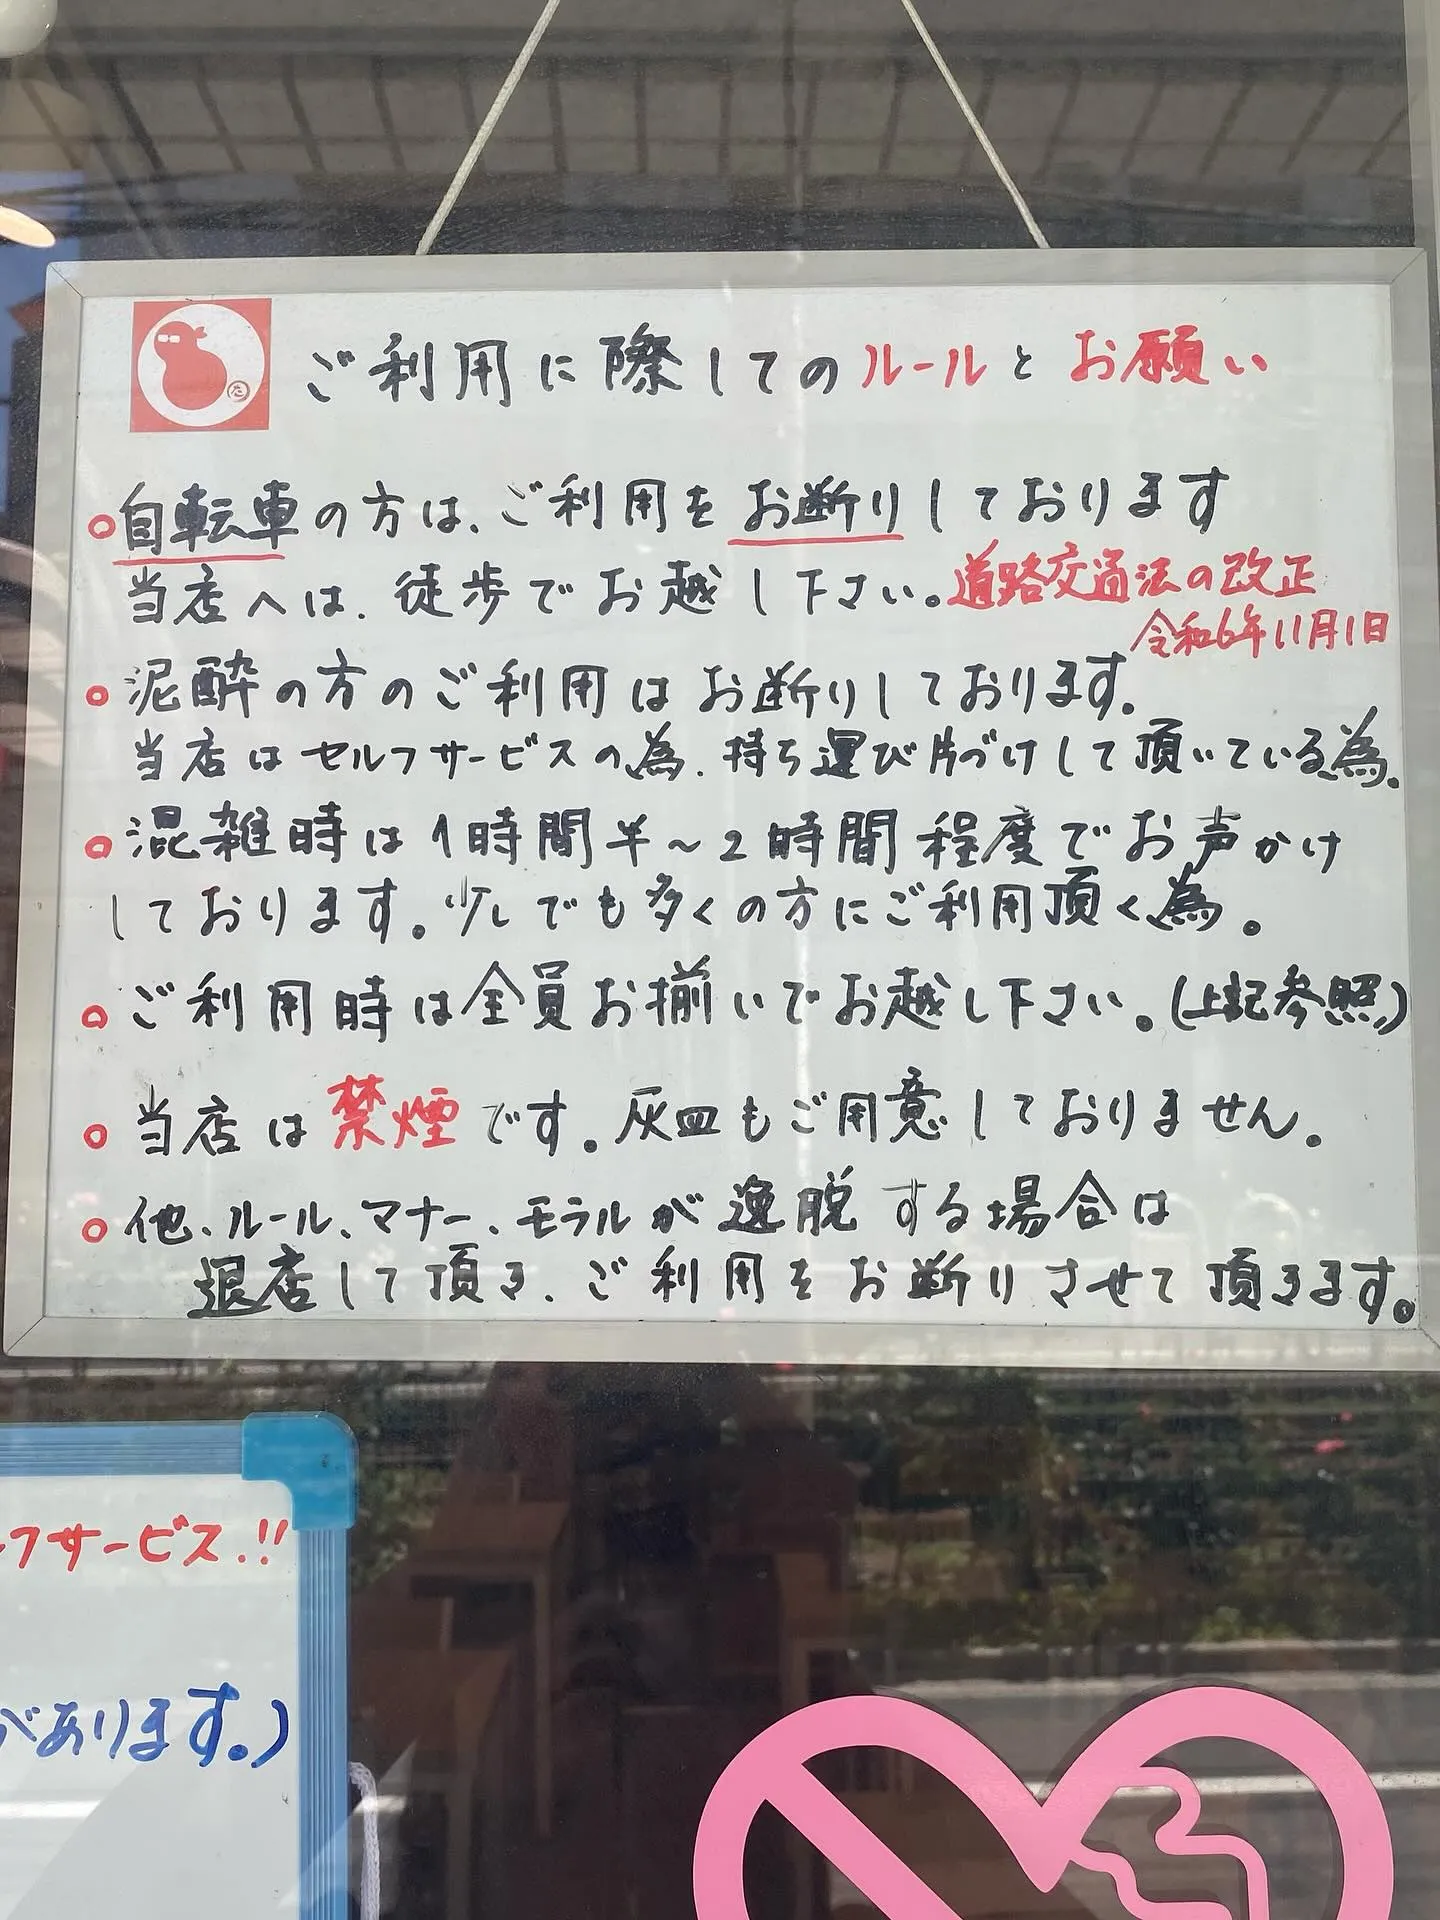 ご利用に際してのルールとお願い
自転車の方は、ご利用をお断りしております
当店へは、徒歩でお越し下さい。道路交通法の改正
令和6年11月1日
泥酔の方のご利用はお断りしております。
当店はセルフサービスの為、持ち運び片づけして頂いている為。
混雑時は1時間半~2時間程度でお声かけ
しております。少しでも多くの方にご利用頂く為。
ご利用時は全員お揃いでお越し下さい。(上記参照)
当店は禁煙です。灰皿もご用意しておりません。
他、ルール、マナー、モラルが逸脱する場合は
退店して頂き、ご利用をお断りさせて頂きます。
フサービス.!!
があります。)